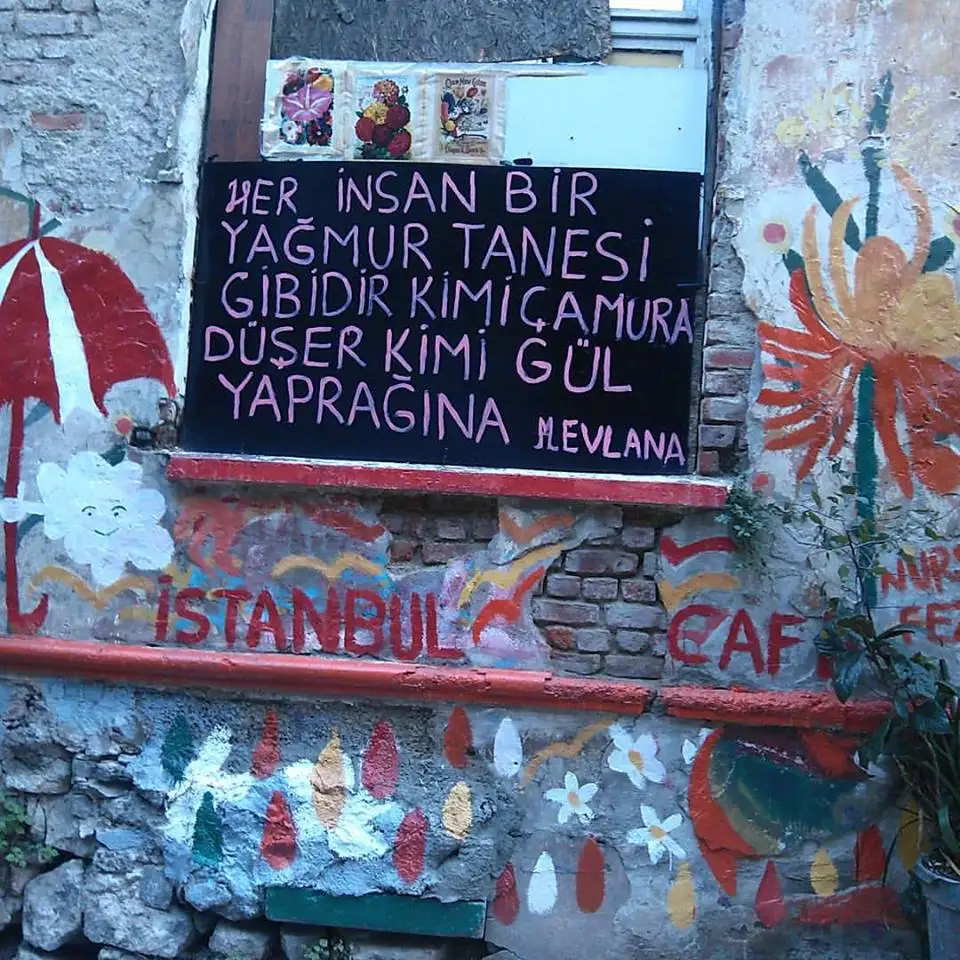 HER İNSAN BİR
YAĞMUR TANESİ
GİBİDİR KİMİ ÇAMURA
DÜŞER KİMİ GÜL
YAPRAĞINA MEVLANA
İSTANBUL CAF